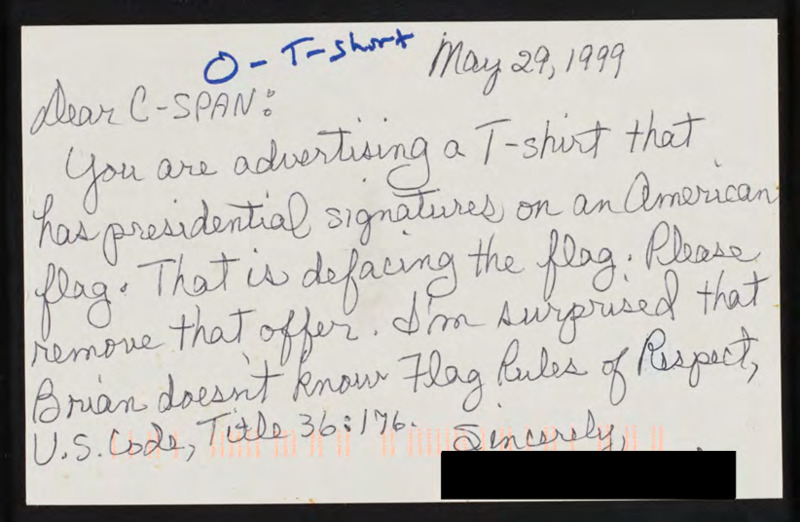 O - T-short
May 29, 1999
Dear C-SPAN:
You are advertising a T-shirt that
has presidential signatures on an American
flag. That is defacing the flag. Please
remove that offer. I'm surprised that
Brian doesn't know Flag Rules of Respect,
U.S. Code, Title 36:176. Sincerely,